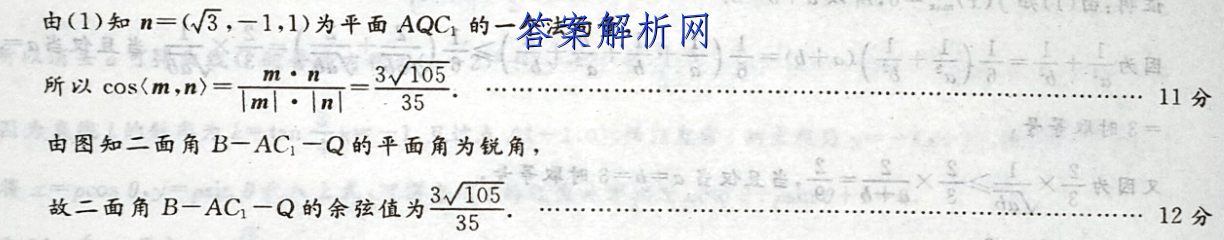 由(1)知 n=(√3,-1,1)为平面 AQC₁ 的一个法向量.
答案解析网
所以 cos⟨m,n⟩=\frac{m·n}{|m|·|n|}=\frac{3√105}{35}. …………………… 11 分
由图知二面角 B-AC₁-Q 的平面角为锐角，
故二面角 B-AC₁-Q 的余弦值为\frac{3√105}{35}. …………………… 12 分